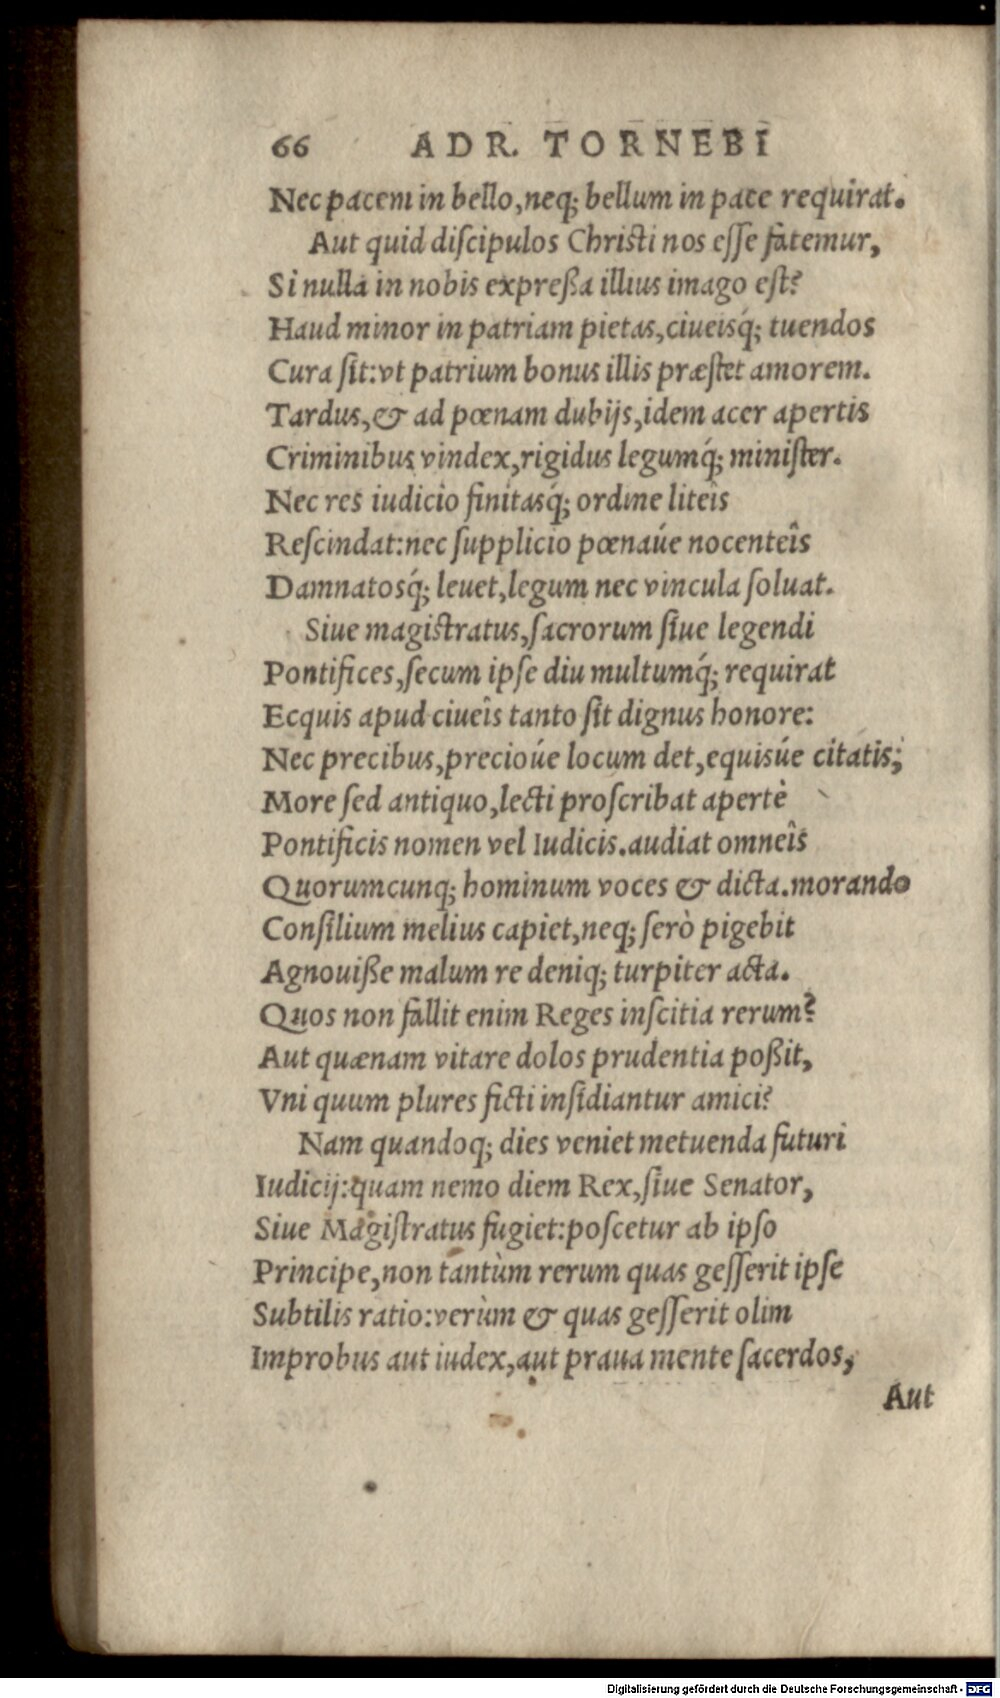 66 ADR. TORNEBI
Nec pacem in bello, neq; bellum in pace requirat.
Aut quid diſcipulos Chriſti nos eſſe fatemur,
Si nulla in nobis expreßa illius imago eſt?
Haud minor in patriam pietas, ciueisq́; tuendos
Cura ſit: vt patrium bonus illis præſtet amorem.
Tardus, & ad pœnam dubijs, idem acer apertis
Criminibus vindex, rigidus legumq́; miniſter.
Nec res iudicio finitasq́; ordine liteîs
Reſcindat: nec ſupplicio pœnaúe nocenteîs
Damnatosq́; leuet, legum nec vincula ſoluat.
Siue magiſtratus, ſacrorum ſiue legendi
Pontifices, ſecum ipſe diu multumq́; requirat
Ecquis apud ciueîs tanto ſit dignus honore:
Nec precibus, precioúe locum det, equisúe citatis;
More ſed antiquo, lecti proſcribat apertè
Pontificis nomen vel Iudicis. audiat omneîs
Quorumcunq; hominum voces & dicta. morando
Conſilium melius capiet, neq; ſerò pigebit
Agnouiße malum re deniq; turpiter acta.
Quos non fallit enim Reges inſcitia rerum?
Aut quænam vitare dolos prudentia poßit,
Vni quum plures ficti inſidiantur amici?
Nam quandoq; dies veniet metuenda futuri
Iudicij: quam nemo diem Rex, ſiue Senator,
Siue Magiſtratus fugiet: poſcetur ab ipſo
Principe, non tantùm rerum quas geſſerit ipſe
Subtilis ratio: verùm & quas geſſerit olim
Improbus aut iudex, aut praua mente ſacerdos,
Aut
Digitalisierung gefördert durch die Deutsche Forschungsgemeinschaft - DFG